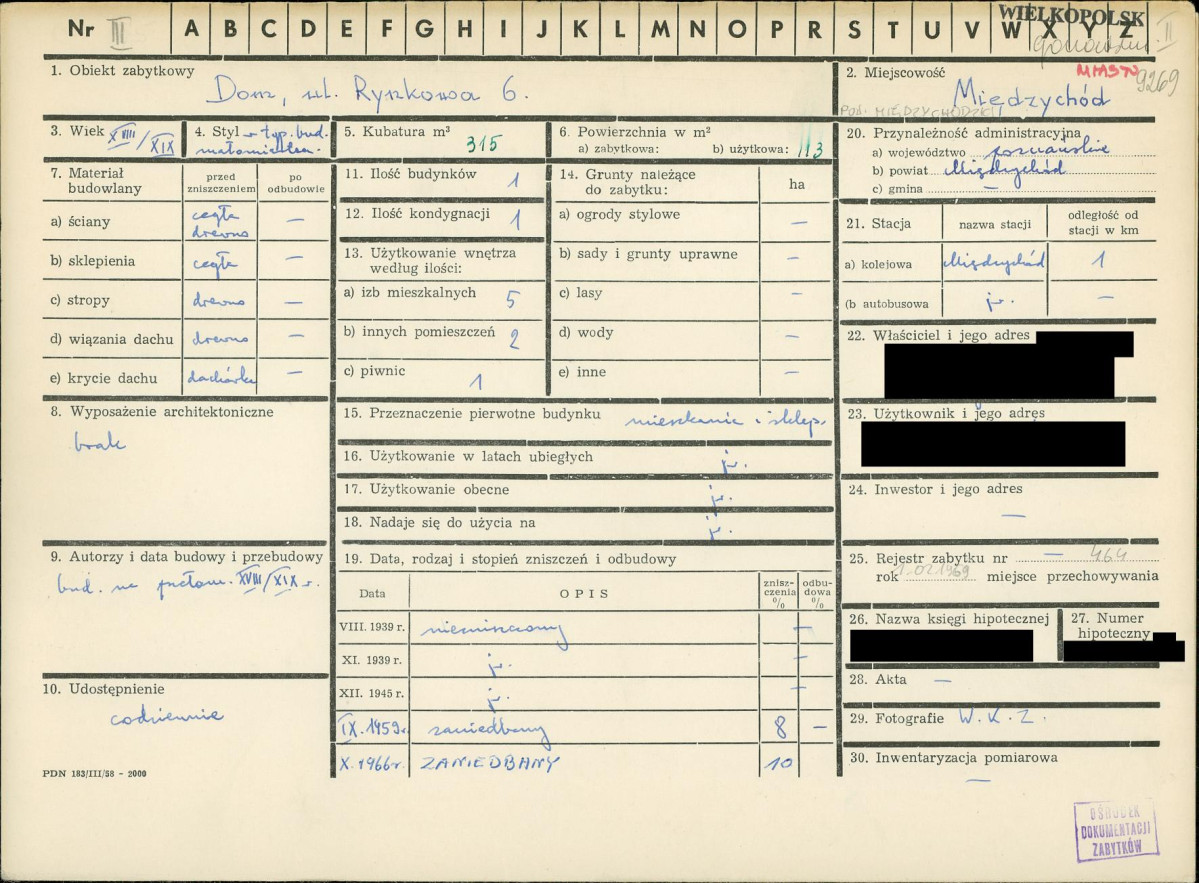 Nr III A B C D E F G H I J K L M N O P R S T U V W X Y Z
WIELKOPOLSK
II
MIASTO 9269
1. Obiekt zabytkowy
Dom, ul. Rynkowa 6.
2. Miejscowość
Międzychód
POW. MIĘDZYCHODZKI
3. Wiek XVIII/XIX
4. Styl typ. bud. małomiastecz.
5. Kubatura m³
315
6. Powierzchnia w m²
a) zabytkowa: b) użytkowa: 113
20. Przynależność administracyjna
a) województwo poznańskie
b) powiat Międzychód
c) gmina —
7. Materiał budowlany
przed zniszczeniem
po odbudowie
a) ściany cegła drewno —
b) sklepienia cegła —
c) stropy drewno —
d) wiązania dachu drewno —
e) krycie dachu dachówka —
11. Ilość budynków 1
12. Ilość kondygnacji 1
13. Użytkowanie wnętrza według ilości:
a) izb mieszkalnych 5
b) innych pomieszczeń 2
c) piwnic 1
14. Grunty należące do zabytku: ha
a) ogrody stylowe —
b) sady i grunty uprawne —
c) lasy —
d) wody —
e) inne —
21. Stacja
nazwa stacji
odległość od stacji w km
a) kolejowa Międzychód 1
(b autobusowa j.w. —
22. Właściciel i jego adres
23. Użytkownik i jego adres
24. Inwestor i jego adres
—
8. Wyposażenie architektoniczne
brak
15. Przeznaczenie pierwotne budynku mieszkanie i sklep.
16. Użytkowanie w latach ubiegłych j.w.
17. Użytkowanie obecne j.w.
18. Nadaje się do użycia na j.w.
9. Autorzy i data budowy i przebudowy
bud. na przełom. XVIII/XIX w.
10. Udostępnienie
codziennie
19. Data, rodzaj i stopień zniszczeń i odbudowy
Data OPIS zniszczenia % odbudowa %
VIII. 1939 r. niezniszczony —
XI. 1939 r. j.w. —
XII. 1945 r. j.w. —
IX. 1959 r. zaniedbany 8 —
X. 1966 r. ZANIEDBANY 10
25. Rejestr zabytku nr — 464
rok 1.02.1969 miejsce przechowywania
26. Nazwa księgi hipotecznej
27. Numer hipoteczny
28. Akta —
29. Fotografie W.K.Z.
30. Inwentaryzacja pomiarowa
—
PDN 183/III/58 - 2000
OŚRODEK
DOKUMENTACJI
ZABYTKÓW